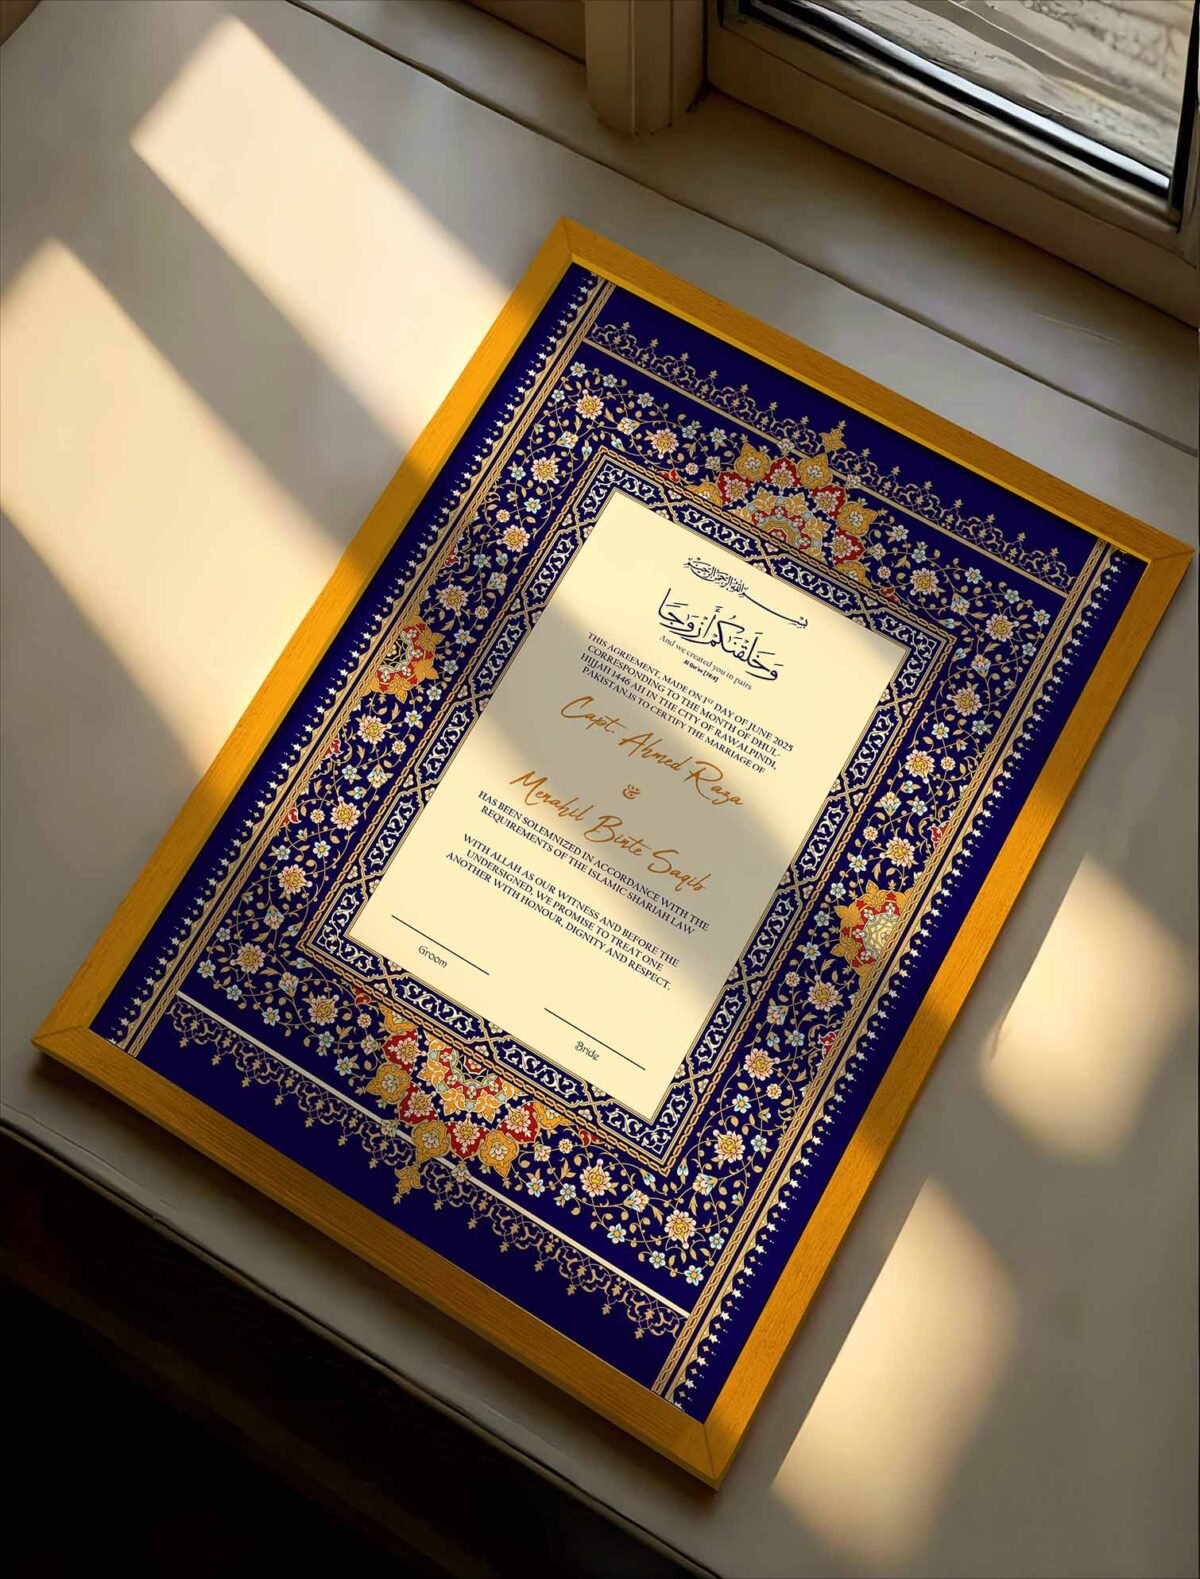 بسم الله الرحمن الرحيم
وَخَلَقْنَٰكُمْ أَزْوَٰجًا
And we created you in pairs
Al Qur'an [78:8]
THIS AGREEMENT, MADE ON 1ST DAY OF JUNE 2025
CORRESPONDING TO THE MONTH OF DHUL-
HIJJAH 1446 AH IN THE CITY OF RAWALPINDI,
PAKISTAN.IS TO CERTIFY THE MARRIAGE OF
Capt. Ahmed Raza
&
Menahil Binte Saqib
HAS BEEN SOLEMNIZED IN ACCORDANCE WITH THE
REQUIREMENTS OF THE ISLAMIC SHARIAH LAW
WITH ALLAH AS OUR WITNESS AND BEFORE THE
UNDERSIGNED, WE PROMISE TO TREAT ONE
ANOTHER WITH HONOUR, DIGNITY AND RESPECT.
Groom
Bride